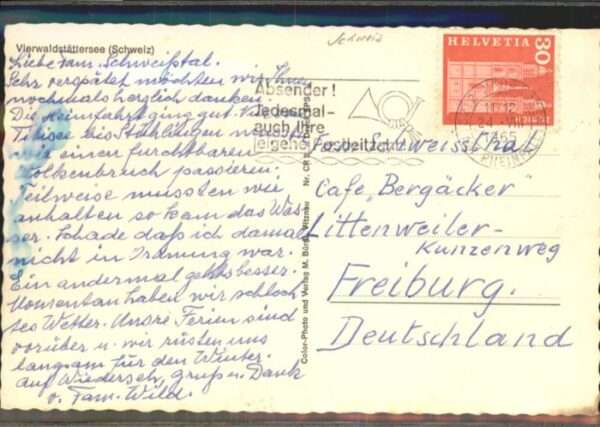 Vierwaldstättersee (Schweiz)
Liebe Fam. Schweißtal.
Sehr verspätet möchten wir Ihnen
nochmals herzlich danken.
Die Heimfahrt ging gut. Von
Titisee bis Stühlingen mussten
wir einen furchtbaren
Wolkenbruch passieren.
Teilweise mussten wir
anhalten so kam das Was-
ser. Schade daß ich damals
nicht in Ordnung war.
Ein andermal gehts besser.
Momentan haben wir schlech
tes Wetter. Unsre Ferien sind
vorüber u. wir rüsten uns
langsam für den Winter.
auf Wiederseh, gruß u. Dank
v. Fam. Wild.
Color-Photo und Verlag M. Vitznau Nr. CR
Schweiz
Absender!
Jedesmal
auch Ihre
eigene Postleitzahl
HELVETIA
30
ZÜRICH
RHEINFALL
Fam. Schweissthal
Cafe "Bergäcker"
Littenweiler-
Kunzenweg
Freiburg.
Deutschland